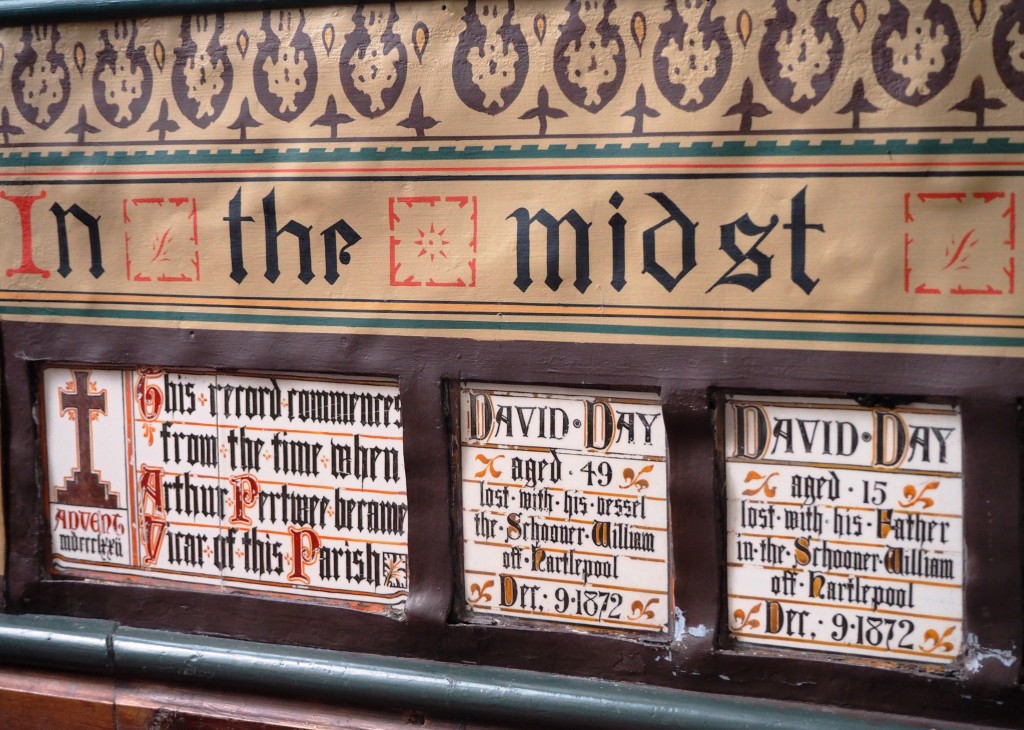 In the midst
This record commences
from the time when
Arthur Pertwee became
Vicar of this Parish
ADVENT
mdccclxxii
DAVID · DAY
aged · 49
lost · with · his · vessel
the · Schooner William
off · Hartlepool
Dec. · 9 · 1872
DAVID · DAY
aged · 15
lost · with · his · Father
in · the · Schooner · William
off · Hartlepool
Dec. · 9 · 1872